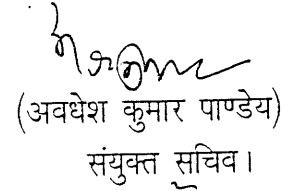 (अवधेश कुमार पाण्डेय)
संयुक्त सचिव।